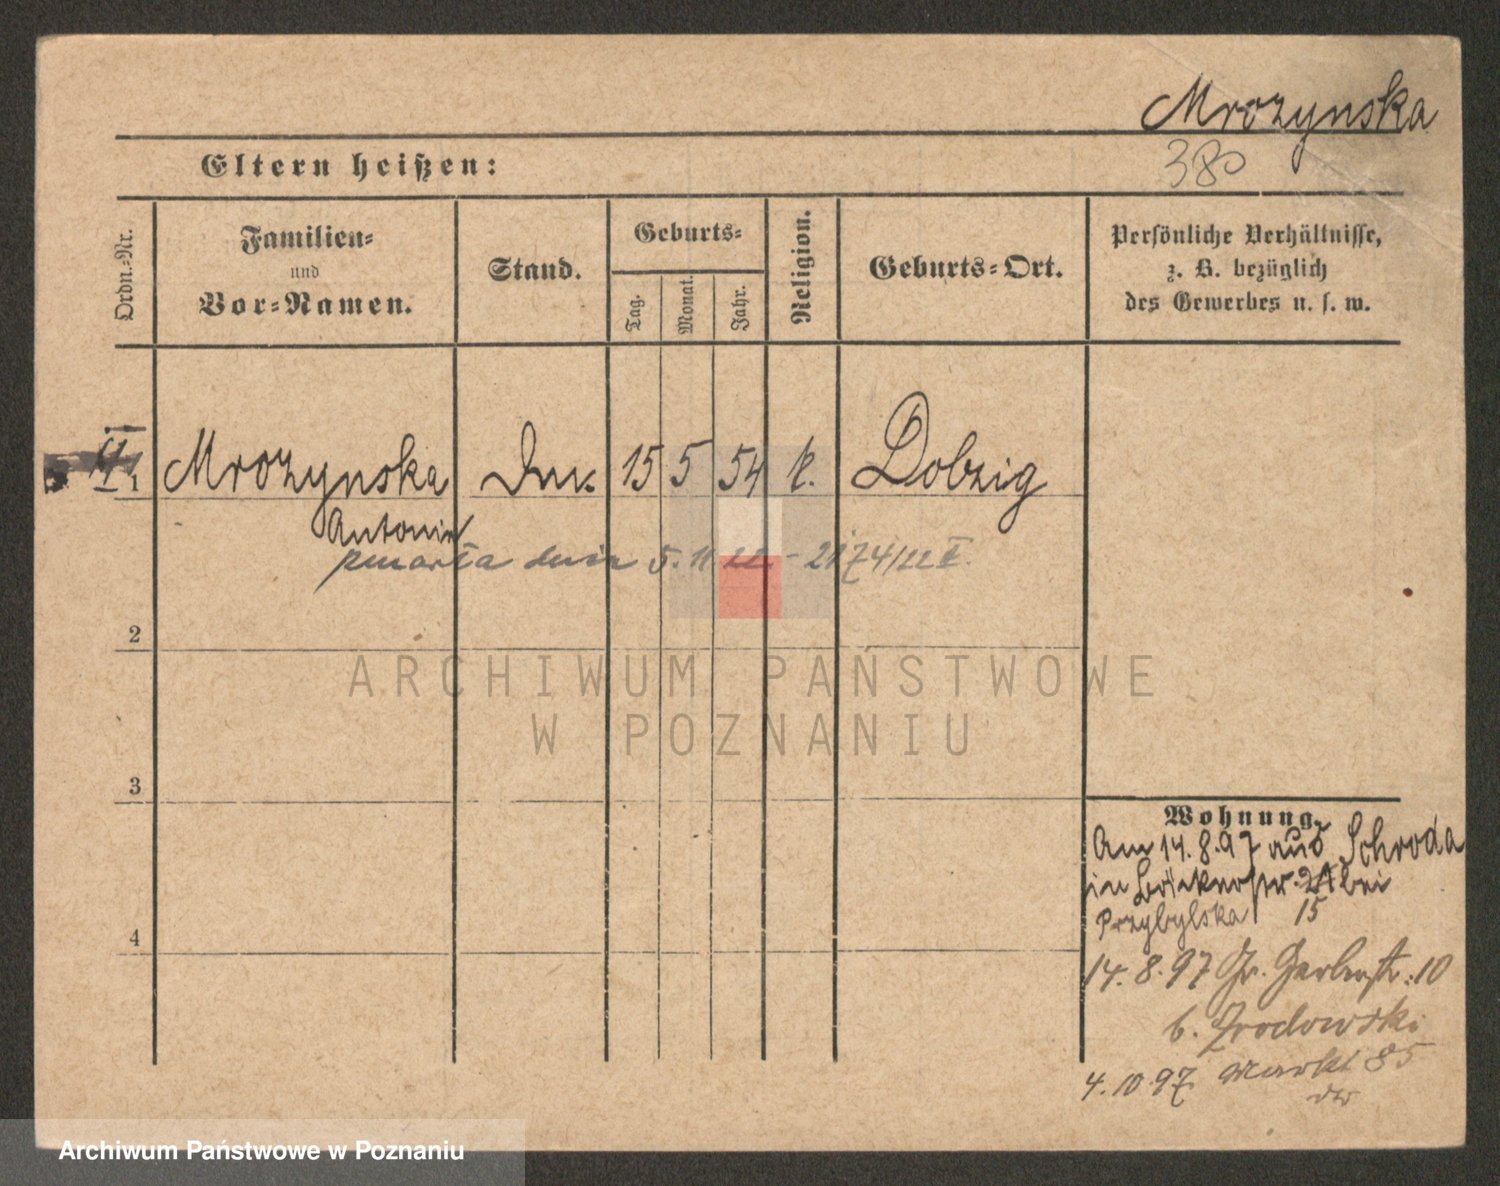 Mrozynska
380
Eltern heißen:
Ordn.-Nr.
Familien-
und
Vor-Namen.
Stand.
Geburts-
Tag.
Monat.
Jahr.
Religion.
Geburts-Ort.
Persönliche Verhältnisse,
z. B. bezüglich
des Gewerbes u. s. w.
1 Mrozynska 15 5 54 k. Dolzig
Antonie
zmarła dnia 5. 11 22 - 2174/22
2
3
4
ARCHIWUM PAŃSTWOWE
W POZNANIU
Wohnung.
Am 14.8.97 aus Schroda
in Bäckerstr. bei
Przybylska 15
14.8.97 Gr. Gerberstr. 10
b. Zrodowski
4.10.97 Markt 85
Archiwum Państwowe w Poznaniu